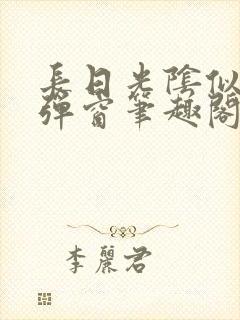 長日光陰似
彈窗筆趣閣
李麗君